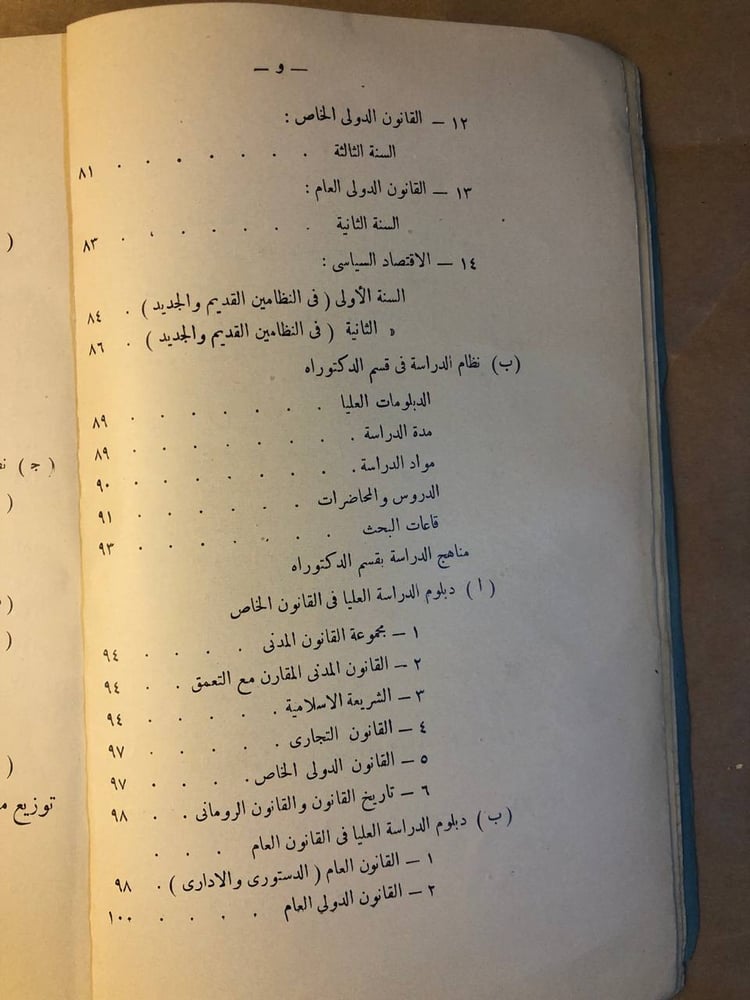 — و —
١٢ — القانون الدولى الخاص :
السنة الثالثة . . . . . . . ٨١
١٣ — القانون الدولى العام :
السنة الثانية . . . . . . . ٨٣
١٤ — الاقتصاد السياسى :
السنة الأولى ( فى النظامين القديم والجديد ) . ٨٤
» الثانية ( فى النظامين القديم والجديد ) . ٨٦
(ب) نظام الدراسة فى قسم الدكتوراه
الدبلومات العليا . . . . . . . ٨٩
مدة الدراسة . . . . . . . . ٨٩
مواد الدراسة . . . . . . . . ٩٠
الدروس والمحاضرات . . . . . . . ٩١
قاعات البحث . . . . . . . ٩٣
مناهج الدراسة بقسم الدكتوراه
( ا ) دبلوم الدراسة العليا فى القانون الخاص
١ — مجموعة القانون المدنى . . . . ٩٤
٢ — القانون المدنى المقارن مع التعمق . . ٩٤
٣ — الشريعة الاسلامية . . . . . ٩٤
٤ — القانون التجارى . . . . . ٩٧
٥ — القانون الدولى الخاص . . . . ٩٧
٦ — تاريخ القانون والقانون الرومانى . . ٩٨
(ب) دبلوم الدراسة العليا فى القانون العام . . .
١ — القانون العام ( الدستورى والادارى ) . ٩٨
٢ — القانون الدولي العام . . . . ١٠٠
( ج )
توزيع